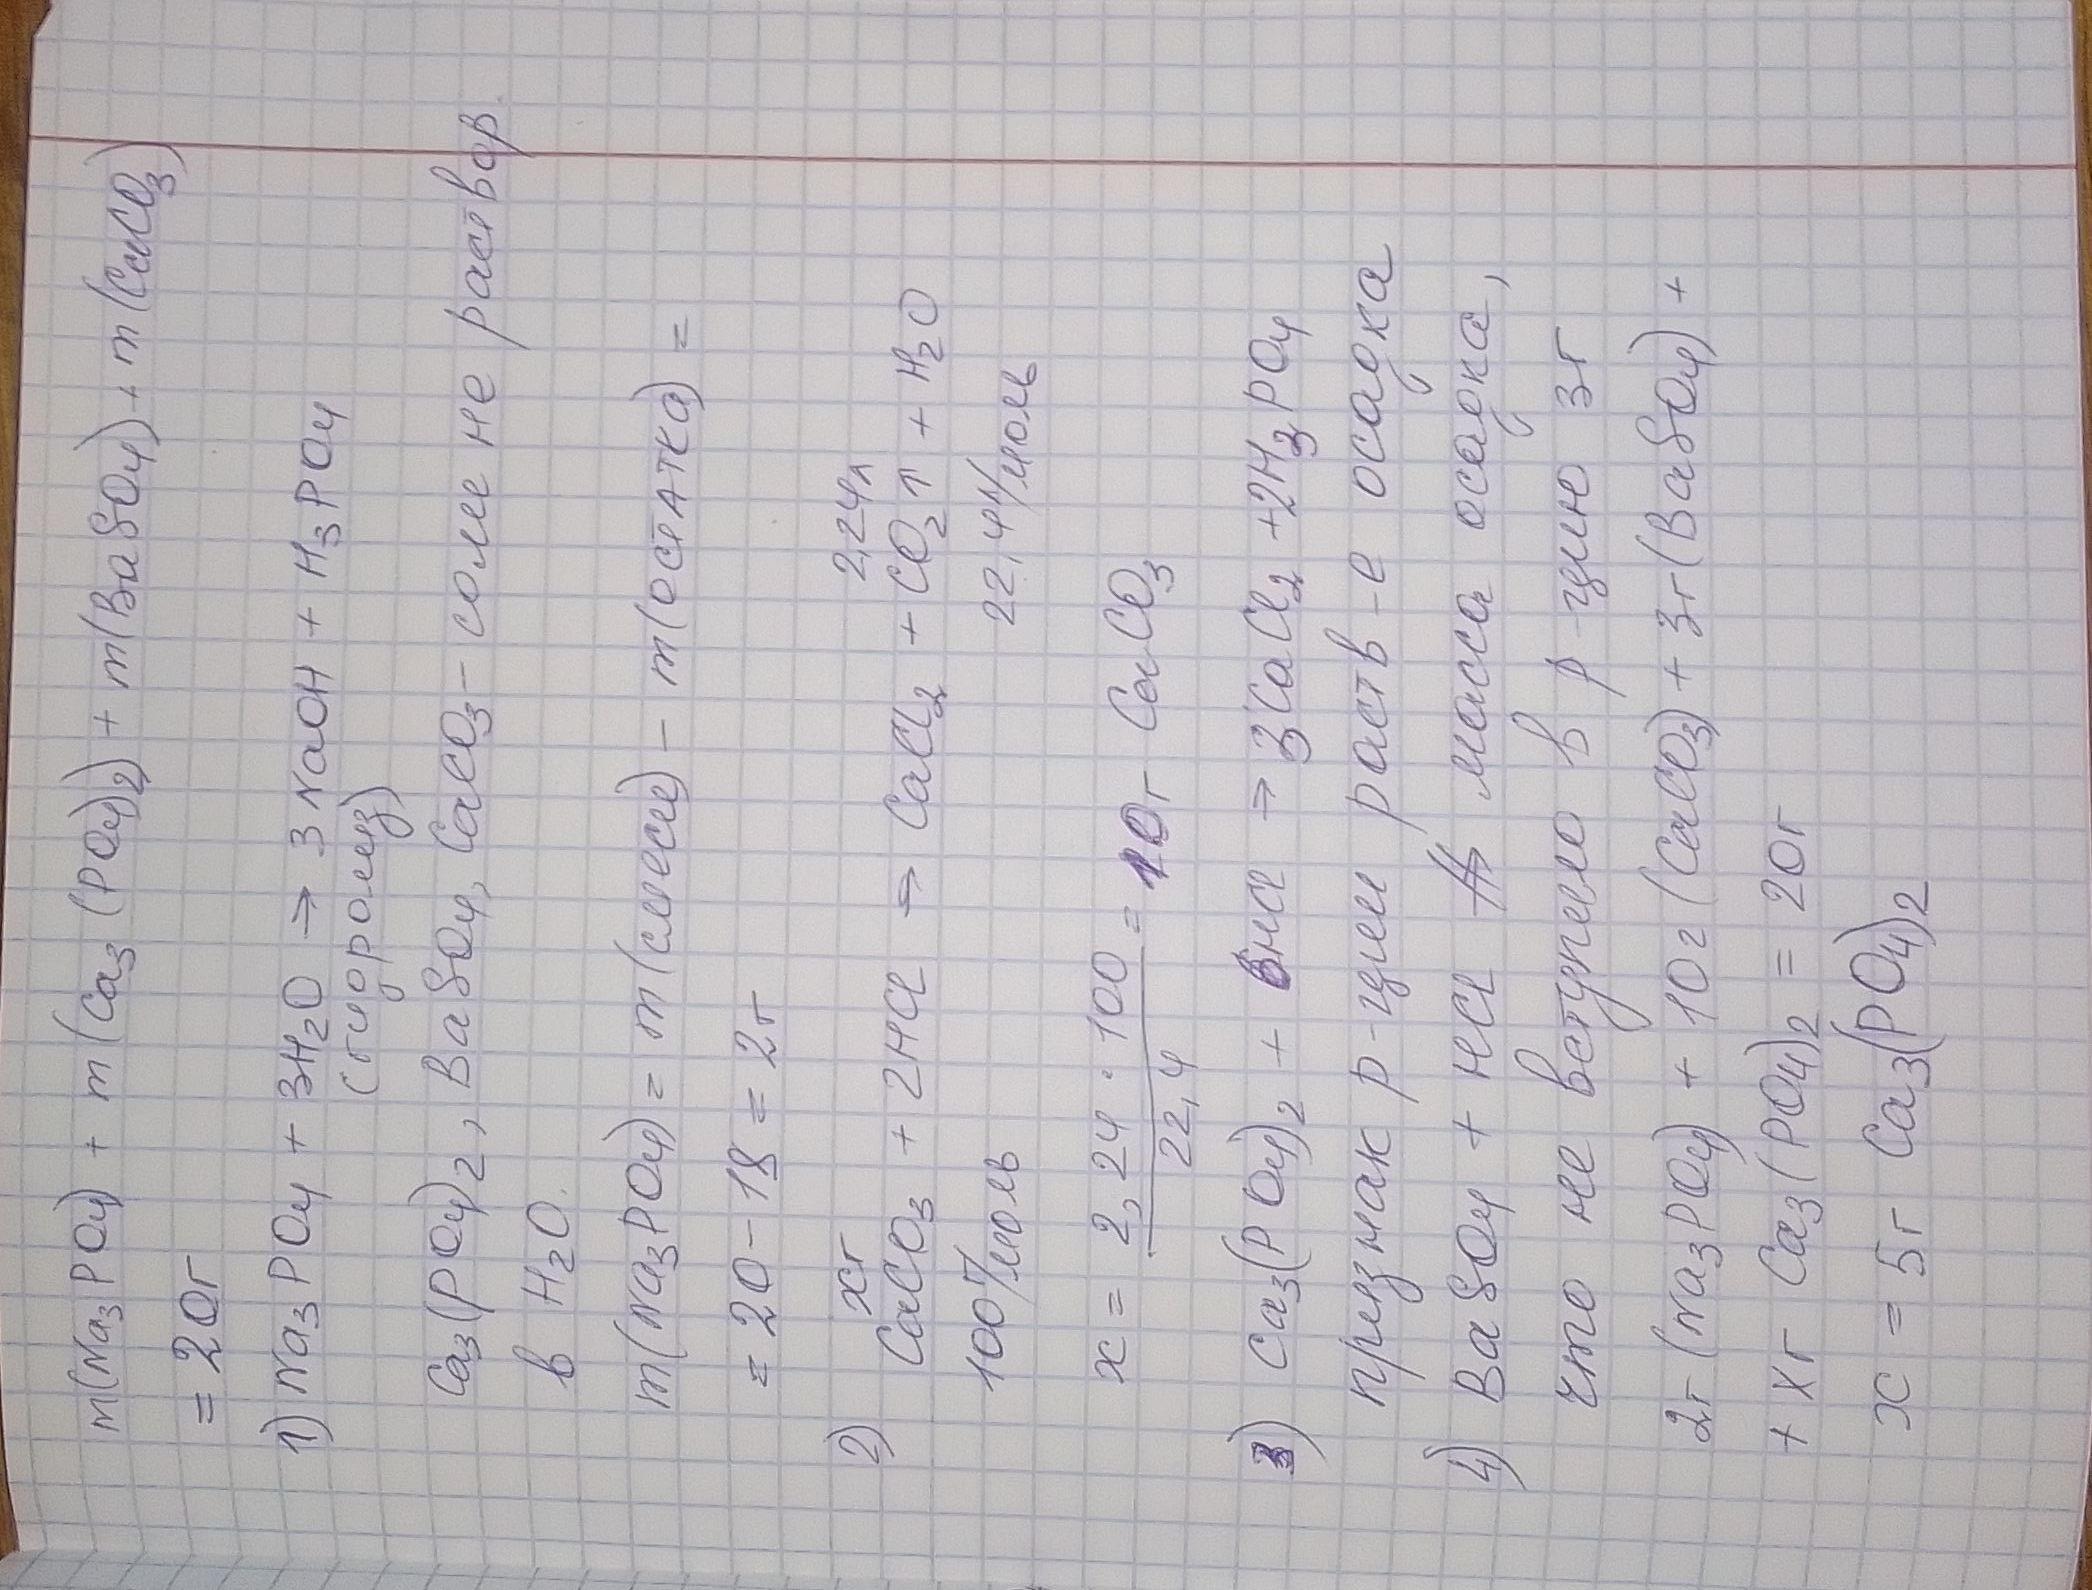 m(Na₃PO₄) + m(Ca₃(PO₄)₂) + m(BaSO₄) + m(CaCO₃)
= 20г
1) Na₃PO₄ + 3H₂O → 3NaOH + H₃PO₄
(гидролиз)
Ca₃(PO₄)₂, BaSO₄, CaCO₃ - соли не раствор.
в H₂O.
m(Na₃PO₄) = m(смеси) - m(остатка) =
= 20 - 18 = 2г
xг 2,24л
2) CaCO₃ + 2HCl → CaCl₂ + CO₂↑ + H₂O
100г/моль 22,4л/моль
x = 2,24 · 100 / 22,4 = 10г CaCO₃
3) Ca₃(PO₄)₂ + 6HCl → 3CaCl₂ + 2H₃PO₄
признак р-ции раств-е осадка
4) BaSO₄ + HCl масса осадка,
что не вступило в р-цию 3г
2г (Na₃PO₄) + 10г (CaCO₃) + 3г (BaSO₄) +
+ xг Ca₃(PO₄)₂ = 20г
x = 5г Ca₃(PO₄)₂